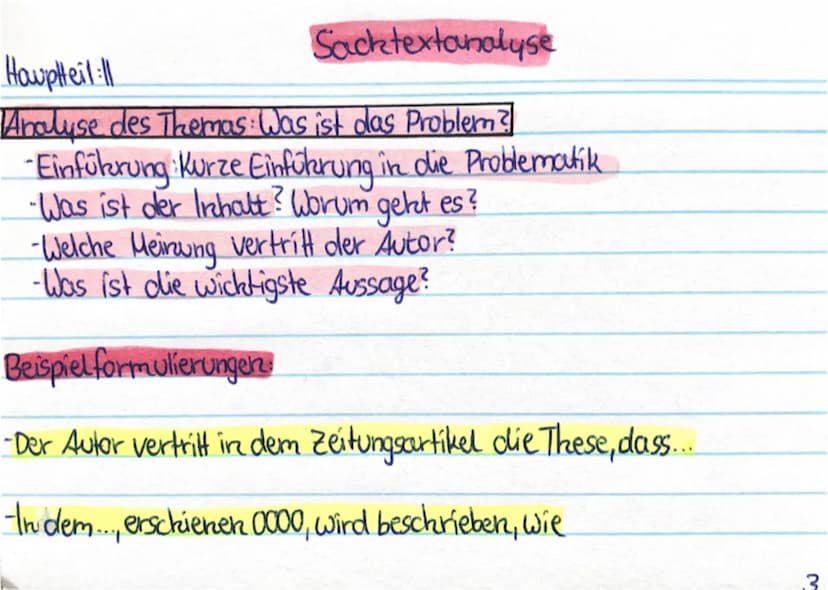 Sachtextanalyse
Hauptteil:II
Analyse des Themas: Was ist das Problem?
-Einführung: Kurze Einführung in die Problematik
-Was ist der Inhalt? Worum geht es?
-Welche Meinung vertritt der Autor?
-Was ist die wichtigste Aussage?
Beispielformulierungen:
-Der Autor vertritt in dem Zeitungsartikel die These, dass...
-In dem..., erschienen 0000, wird beschrieben, wie
3